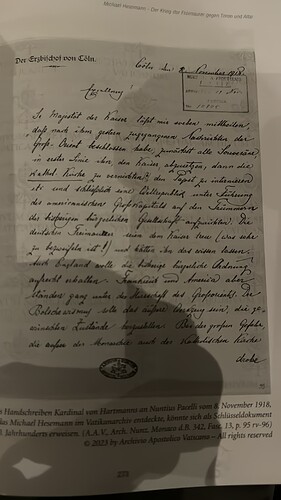 Michael Hesemann - Der Krieg der Freimaurer gegen Thron und Altar
Der Erzbischof von Cöln.
Cöln, den 8. November 1918.
Exzellenz!
Se. Majestät der Kaiser läßt mir soeben mittheilen,
„daß nach ihm gestern zugegangenen Nachrichten der
Groß-Orient beschlossen habe, zunächst alle Souveräne
in erster Linie ihn den Kaiser abzusetzen, dann die
kathol. Kirche zu vernichten(?), den Papst zu internieren
etc und schließlich eine Weltrepublik unter Führung
des amerikanischen Großkapitals auf den Trümmern
der bisherigen bürgerlichen Gesellschaft aufzurichten. Die
deutschen Freimaurer seien dem Kaiser treu (was sehr
zu bezweifeln ist!) und hätten ihn das wissen lassen.
Auch England wolle die bisherige bürgerliche Ordnung
aufrecht erhalten. Frankreich und Amerika aber
ständen ganz unter der Herrschaft des Großorients. Der
Bolschewismus solle das äußere Werkzeug sein, die ge-
wünschten Zustände herzustellen. Bei der großen Gefahr,
die außer der Monarchie auch der katholischen Kirche
drohe
Handschreiben Kardinal von Hartmanns an Nuntius Pacelli vom 8. November 1918,
das Michael Hesemann im Vatikanarchiv entdeckte, könnte sich als Schlüsseldokument
Jahrhunderts erweisen. (A.A.V., Arch. Nunz. Monaco d.B. 342, Fasc. 13, p. 95 rv-96)
© 2023 by Archivio Apostolico Vaticano – All rights reserved